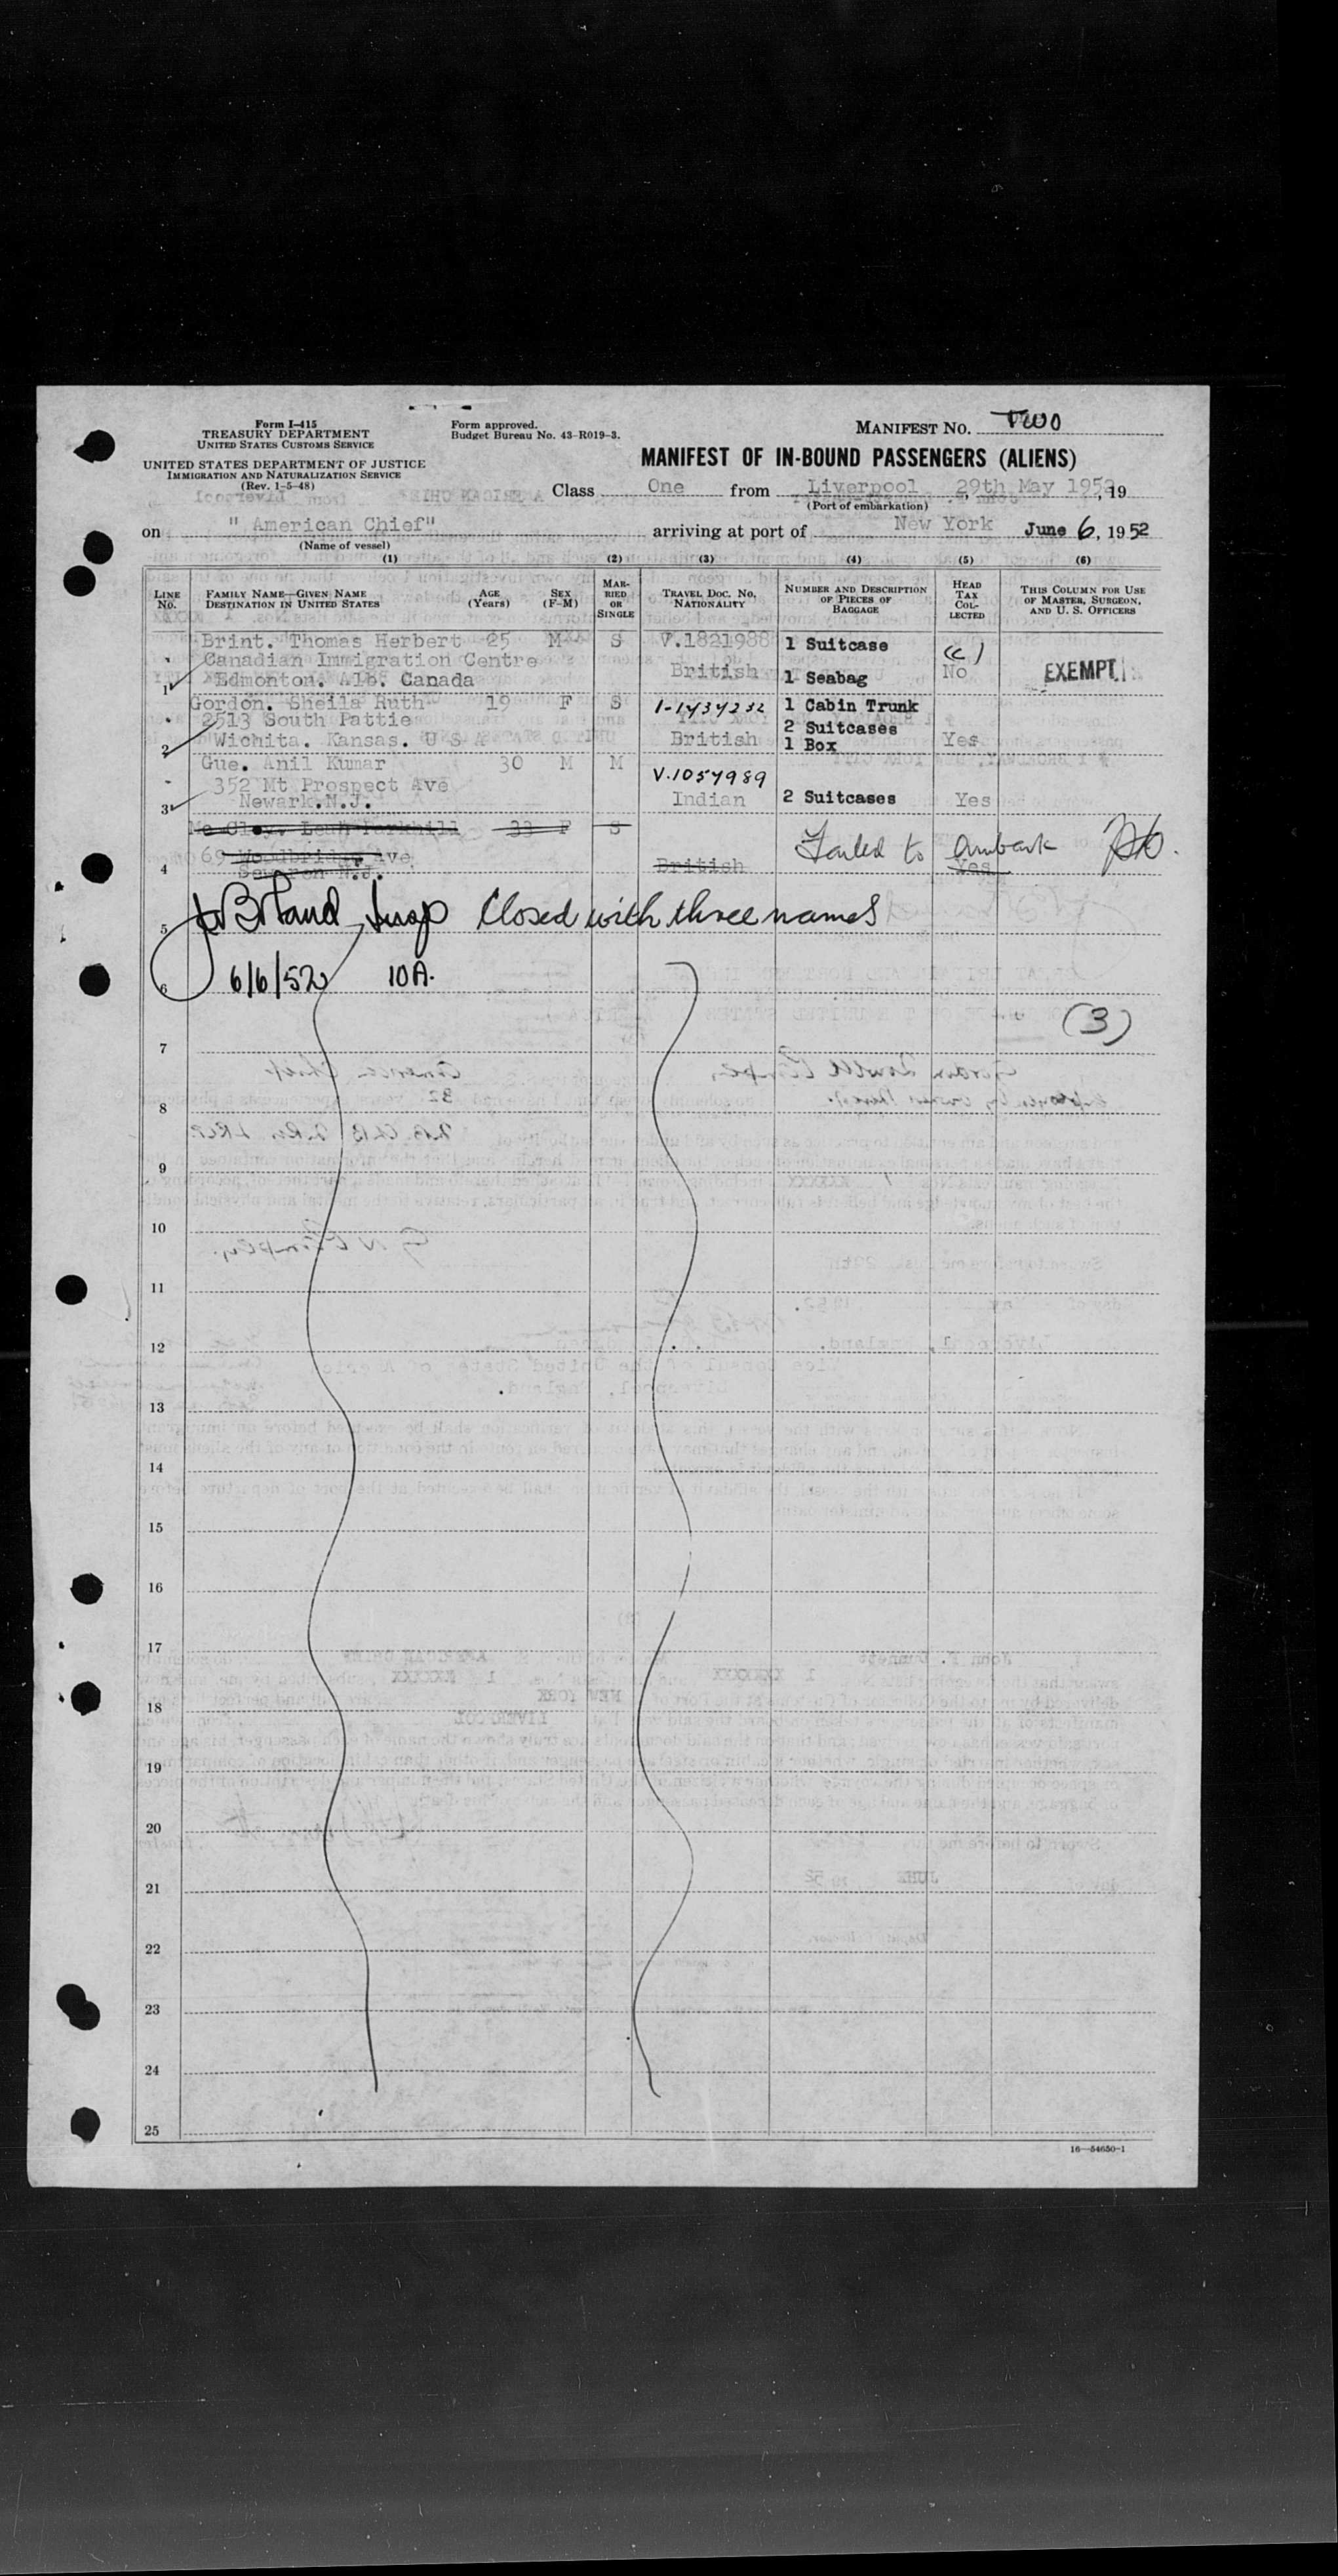 Form I-415
TREASURY DEPARTMENT
UNITED STATES CUSTOMS SERVICE
UNITED STATES DEPARTMENT OF JUSTICE
IMMIGRATION AND NATURALIZATION SERVICE
(Rev. 1-5-48)
Form approved.
Budget Bureau No. 43-R019-3.
MANIFEST NO. TWO
MANIFEST OF IN-BOUND PASSENGERS (ALIENS)
Class One from Liverpool 29th May 1952, 19
(Port of embarkation)
on " American Chief" arriving at port of New York June 6, 1952
(Name of vessel)
(1) (2) (3) (4) (5) (6)
LINE No.
FAMILY NAME—GIVEN NAME
DESTINATION IN UNITED STATES
AGE (Years)
SEX (F-M)
MARRIED OR SINGLE
TRAVEL DOC. NO. NATIONALITY
NUMBER AND DESCRIPTION OF PIECES OF BAGGAGE
HEAD TAX COLLECTED
THIS COLUMN FOR USE OF MASTER, SURGEON, AND U. S. OFFICERS
Brint. Thomas Herbert 25 M S V.1821988 1 Suitcase
Canadian Immigration Centre British No EXEMPT
1 Edmonton. Alb. Canada 1 Seabag
Gordon. Sheila Ruth 19 F S 1 Cabin Trunk
2513 South Pattie 2 Suitcases
2 Wichita. Kansas. U S A British 1 Box Yes
Gue. Anil Kumar 30 M M V.1057989
352 Mt Prospect Ave
3 Newark.N.J. Indian 2 Suitcases Yes
33 F S Failed to embark
69 Woodbridge Ave
4 Sewaren N.J. British Yes
5 Insp Closed with three names
6 6/6/52 10A.
(3)
7
8
9
10
11
12
13
14
15
16
17
18
19
20
21
22
23
24
25
16—54650-1